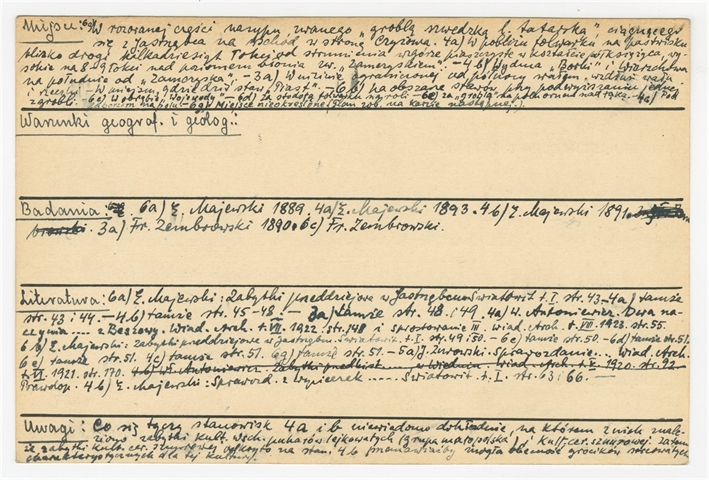 Miejsce: 6a) W rozoranej części nasypu, zwanego "groblą szwedzką l. tatarską", ciągnącego
się z Jastrzębca na wschód w stronę Czyżowa. 4a) W pobliżu folwarku na pastwisku
blisko drogi kilkadziesiąt kroków od strumienia wzgórze piaszczyste w kształcie półksiężyca, wy-
sokie na 6 łokci nad poziomem błonia zw. "zamczyskiem". - 4b) Wydma "Borki" i Warchowa
na południe od "zamczyska". - 3a) W nizinie ograniczonej od północy wałem, wzdłuż wału
i rzeczki. - W miejscu gdzie dziś staw "Piast". - 6b) na obszarze stawów przy podwyższaniu jednej
z grobli. - 6c) W obrębie - 6d) Za stodołą folwarku na roli - 6e) za "groblą" na północ nad łąką. - 4c) Pod
6g) Miejsce nieokreślone (plan zob. na karcie następnej).
Warunki geograf. i geolog.:
Badania: 6a) E. Majewski 1889. 4a) E. Majewski 1893. 4b) E. Majewski 1891
3a) Fr. Zembrowski 1890. 6c) Fr. Zembrowski.
Literatura: 6a) E. Majewski: Zabytki przeddziejowe w Jastrzębcu Światowit t. I. str. 43 - 4a) tamże
str. 43 i 44. - 4b) tamże str. 45-48. - 3a) tamże str. 48 i 49. 4a) W. Antoniewicz. Dwa na-
czynia .... z Beszowy. Wiad. Arch. t. VII. 1922. str. 148 i sprostowanie w Wiad. Arch. t. VIII 1923. str. 55.
6b) E. Majewski: zabytki przeddziejowe w Jastrzębcu Światowit t. I. str. 49 i 50. - 6c) tamże str. 50. - 6d) tamże str. 51
6e) tamże str. 51. 4c) tamże str. 51. 6g) tamże str. 51. - 5a) J. Żurowski: Sprawozdanie.... Wiad. Arch.
t. VI. 1921. str. 170. 4b) W. Antoniewicz. Zabytki przedhist. .... w Wiedniu. Wiad. Arch. t. V. 1920. str. 92
Prawdop. 4b) E. Majewski: Sprawozd. z wycieczek ..... Światowit t. I. str. 63 i 66. -
Uwagi: Co się tyczy stanowisk 4a i b niewiadomo dokładnie, na którem z nich znale-
ziono zabytki kult. wsch. puharów lejkowatych (grupa małopolska) i kult. cer. sznurowej. za tem
że zabytki kult. cer. sznurowej odkryto na stan. 4b przemawiałaby mogła obecność grocików sercowatych
charakterystycznych dla tej kultury.